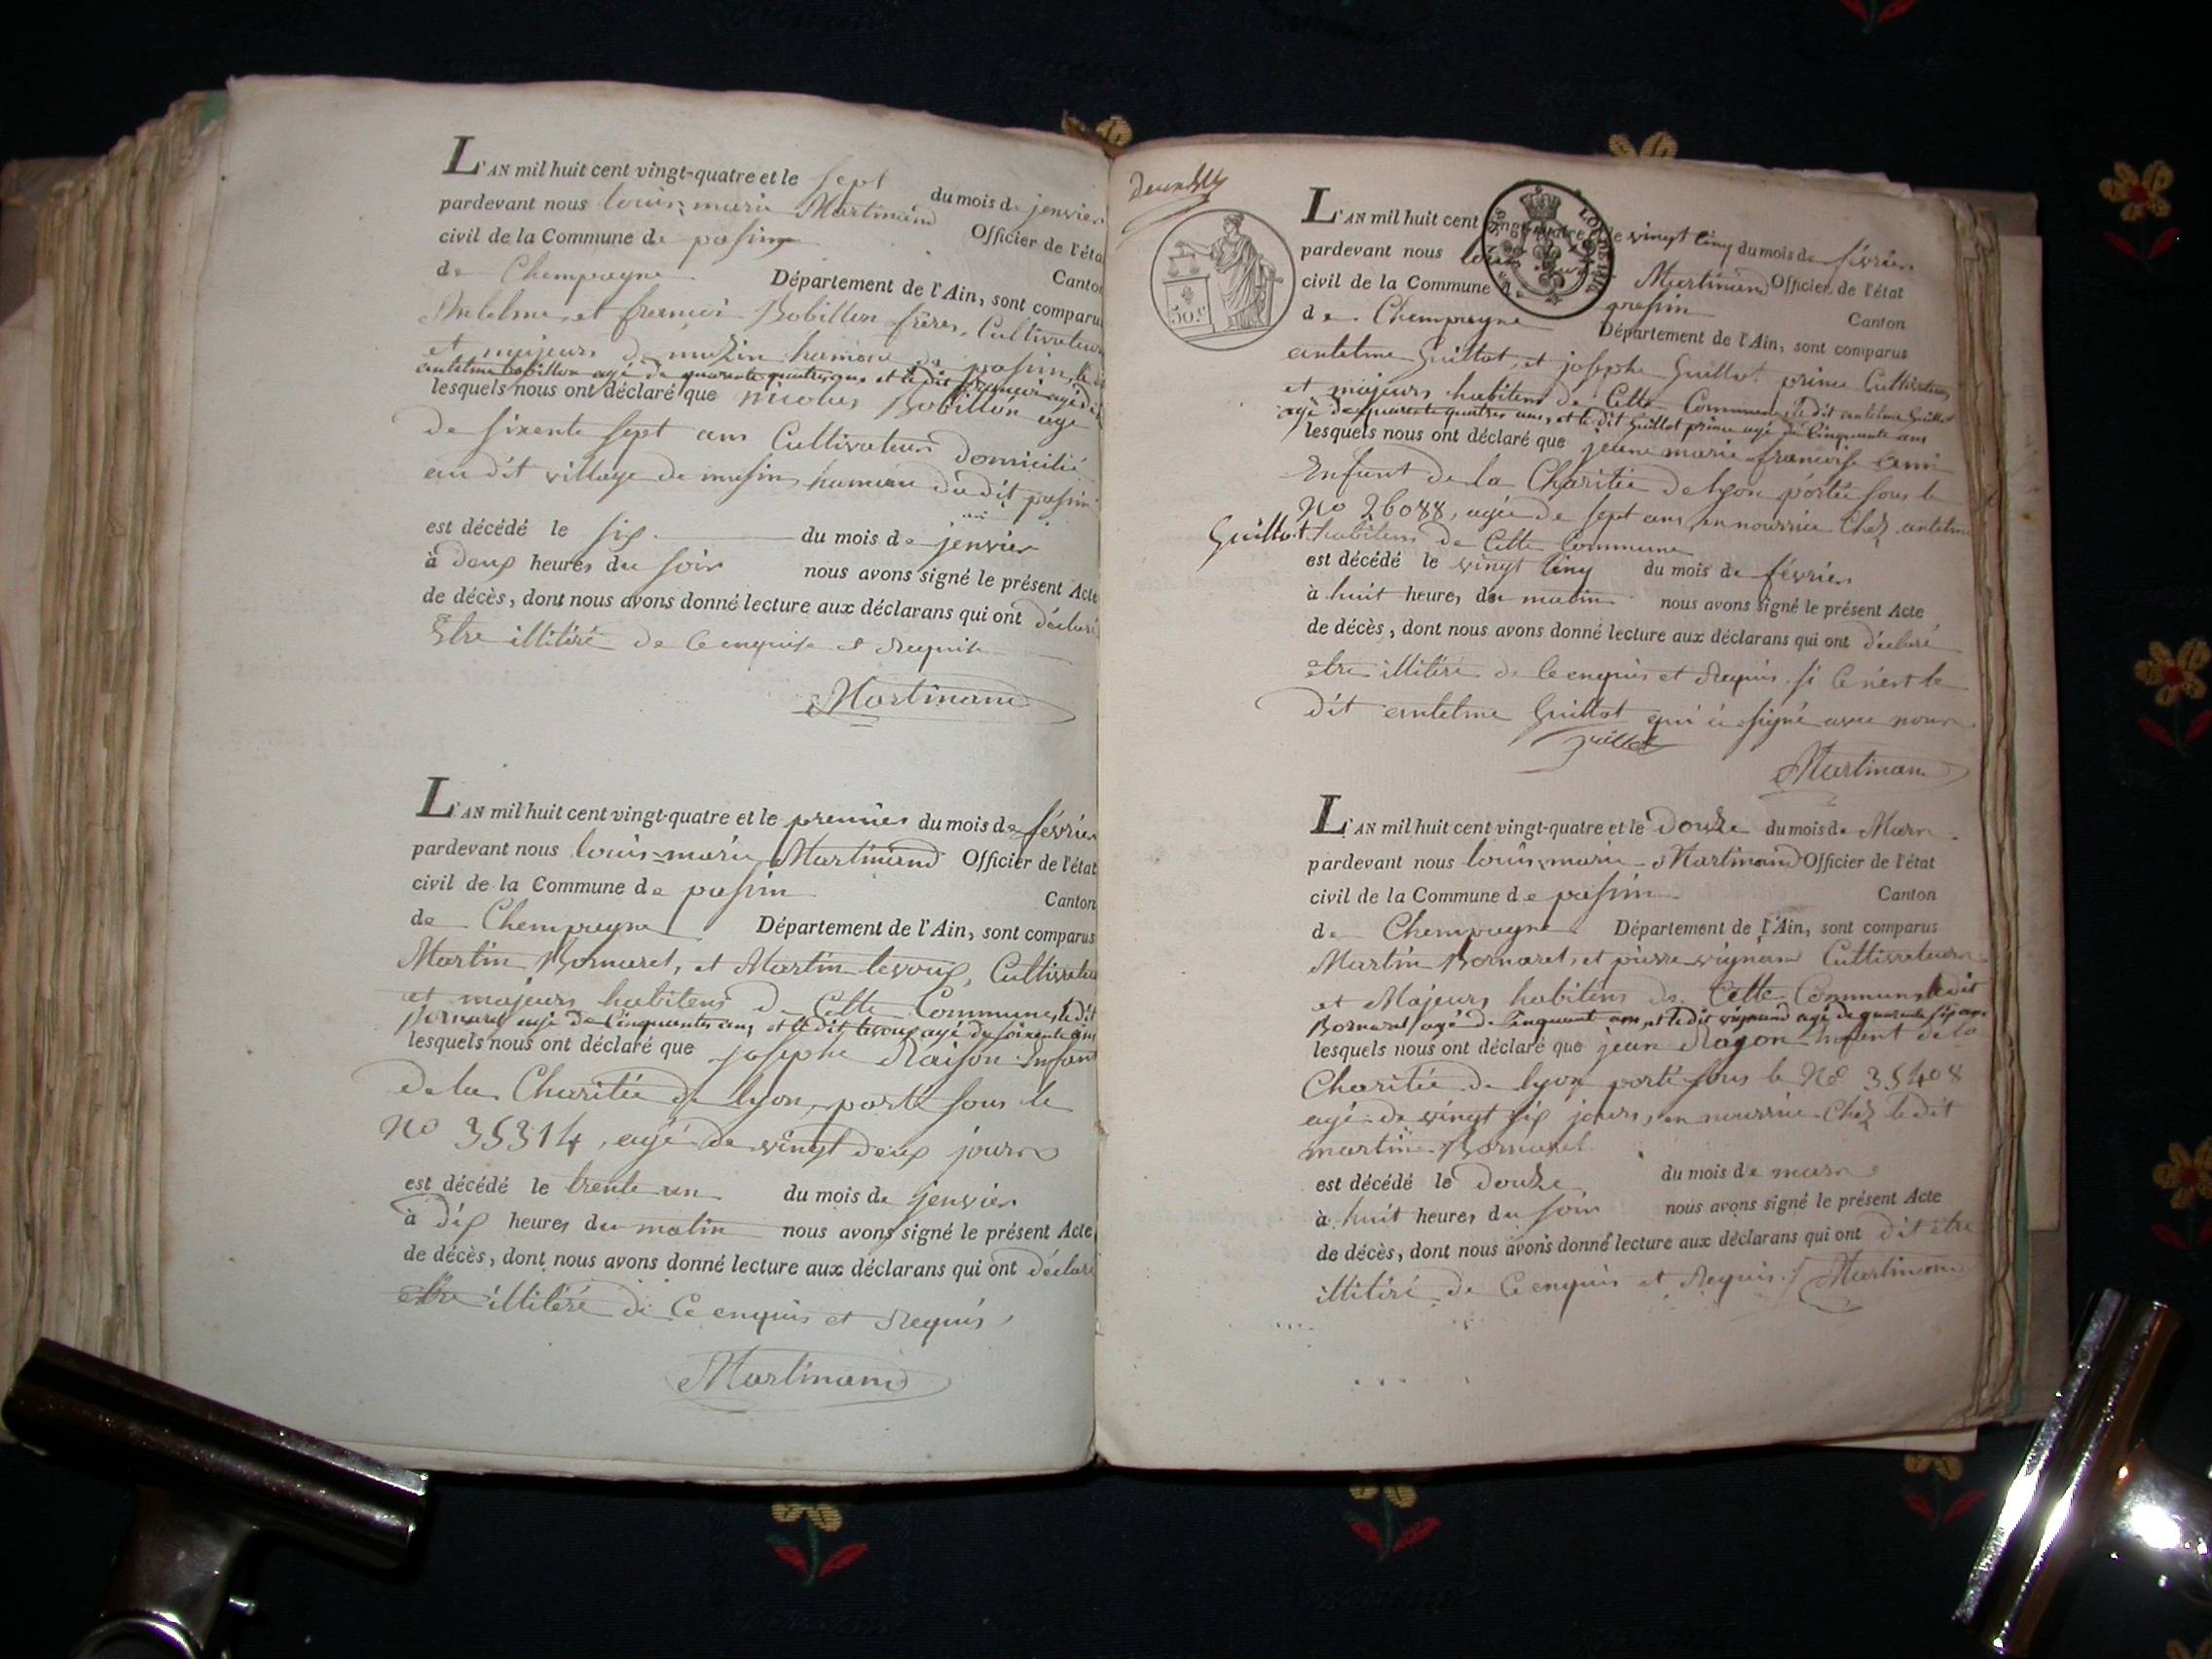 L'AN mil huit cent vingt-quatre et le sept du mois de jenvier
pardevant nous louis marie Martinand Officier de l'éta
civil de la Commune de pasin Canton
de Chempagne Département de l'Ain, sont comparu
Antelme et francois Bobillon frères, Cultivateurs
et majeurs de musin hameau de pasin, le d
antelme bobillon agé de quarente quatre ans et le dit francois agé de
lesquels nous ont déclaré que nicolas Bobillon age
de sixente sept ans Cultivateur domicilié
au dit village de musin hameau du dit pasin
est décédé le six du mois de jenvier
à deux heures du soir nous avons signé le présent Acte
de décès, dont nous avons donné lecture aux déclarans qui ont déclaré
Etre illitéré de Ce enquise et Requis
Martinand
L'AN mil huit cent vingt-quatre et le premier du mois de février
pardevant nous louis-marie Martinand Officier de l'état
civil de la Commune de pasin Canton
de Chempagne Département de l'Ain, sont comparus
Martin Bornaret, et Martin levoux, Cultivateu
et majeurs habitens de Cette Commune, le dit
Bornaret agé de Cinquante ans et le dit levoux agé de soixente ans
lesquels nous ont déclaré que josephe Raison Enfant
de la Charitée de lyon, porté sous le
No 35314, agé de vingt deux jours
est décédé le trente un du mois de jenvier
à dix heures du matin nous avons signé le présent Acte
de décès, dont nous avons donné lecture aux déclarans qui ont déclaré
être illitéré de Ce enquis et Requis
Martinand
50 c
L'AN mil huit cent vingt-quatre et le vingt Cinq du mois de février
pardevant nous louis Martinand Officier de l'état
civil de la Commune de pasin Canton
de Chempagne Département de l'Ain, sont comparus
antelme Guillot, et josephe Guillot prince Cultivateurs
et majeurs habitens de Cette Commune, le dit antelme Guillot
agé de quarente quatres ans, et le dit Guillot prince agé de Cinquante ans
lesquels nous ont déclaré que jeane marie francoise
Enfant de la Charitée de lyon portée sous le
No 26088, agée de sept ans, en nourrice Chez antelme
Guillot habitens de Cette Commune
est décédé le vingt Cinq du mois de février
à huit heures du matin nous avons signé le présent Acte
de décès, dont nous avons donné lecture aux déclarans qui ont déclaré
etre illitéré de Ce enquis et Requis si Ce n'est le
dit antelme Guillot qui à signé avec nous
Guillot
Martinand
L'AN mil huit cent vingt-quatre et le douze du mois de Mars
pardevant nous louis-marie Martinand Officier de l'état
civil de la Commune de pasin Canton
de Chempagne Département de l'Ain, sont comparus
Martin Bornaret, et pierre vignand Cultivateurs
et Majeurs habitens de Cette Commune, le dit
Bornaret agé de Cinquant ans, et le dit vignand agé de quarente six ans
lesquels nous ont déclaré que jean Ragon Enfent de la
Charitée de lyon porté sous le No 35408
agé de vingt six jours, en nourrice Chez le dit
martin Bornaret
est décédé le douze du mois de mars
à huit heures du soir nous avons signé le présent Acte
de décès, dont nous avons donné lecture aux déclarans qui ont dit etre
illitéré de Ce enquis et Requis. Martinand